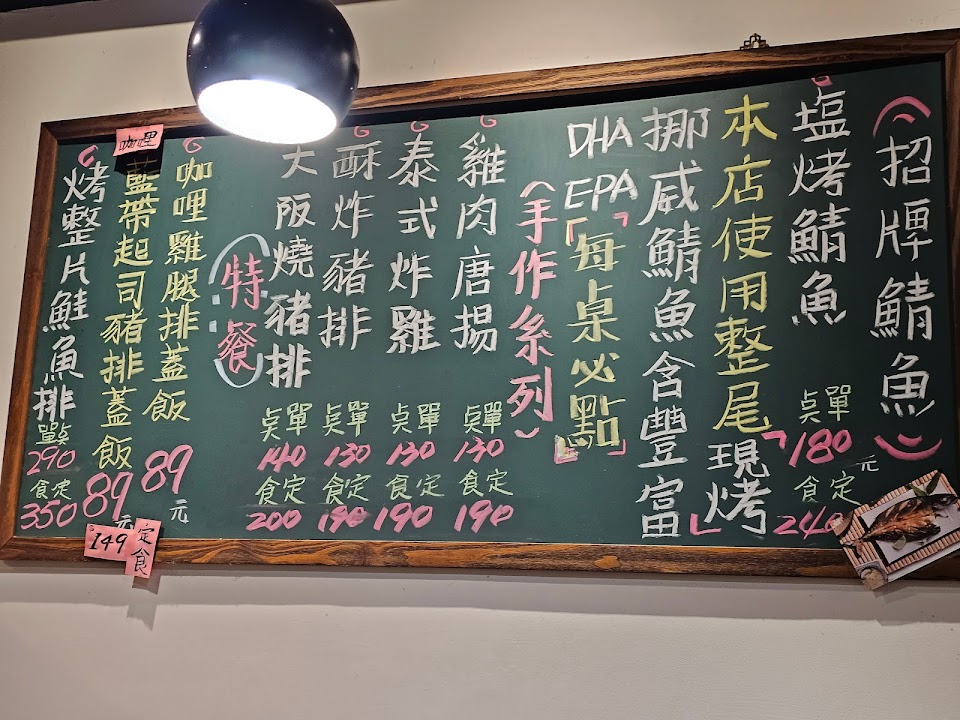 (招牌鯖魚)
塩烤鯖魚
單点
180元
定食
240
本店使用整尾
「現烤」
挪威鯖魚含豐富
DHA
EPA
「每桌必點」
(手作系列)
雞肉唐揚
單点
130
定食
190
泰式炸雞
單点
130
定食
190
酥炸豬排
單点
130
定食
190
大阪燒豬排
單点
140
定食
200
(特餐)
咖哩雞腿排蓋飯
89元
咖哩
藍帶起司豬排蓋飯
89元
149
定食
烤整片鮭魚排
單点
290
定食
350